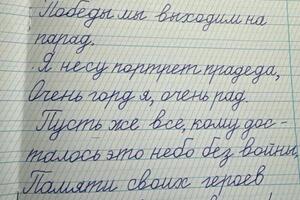 Победы мы выходим на
парад.
Я несу портрет прадеда,
Очень горд я, очень рад.
Пусть же все, кому дос-
талось это небо без войны,
Памяти своих героев